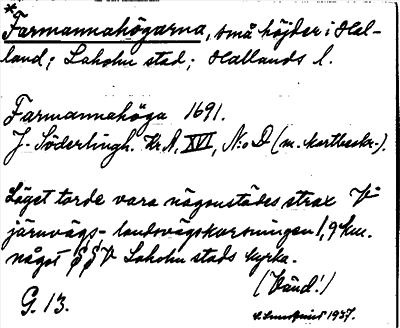 *Farmannahögarna, små höjder i Hal-
land; Laholm stad; Hallands l.
Farmannahöga 1691.
J. Söderlingh. XVI, N:o D (m. kartbeskr.).
Läget torde vara någonstädes strax V
järnvägs- landsvägskorsningen 1,9 km.
något V Laholm stads kyrka.
(Vänd!)
G. 13. 1937.